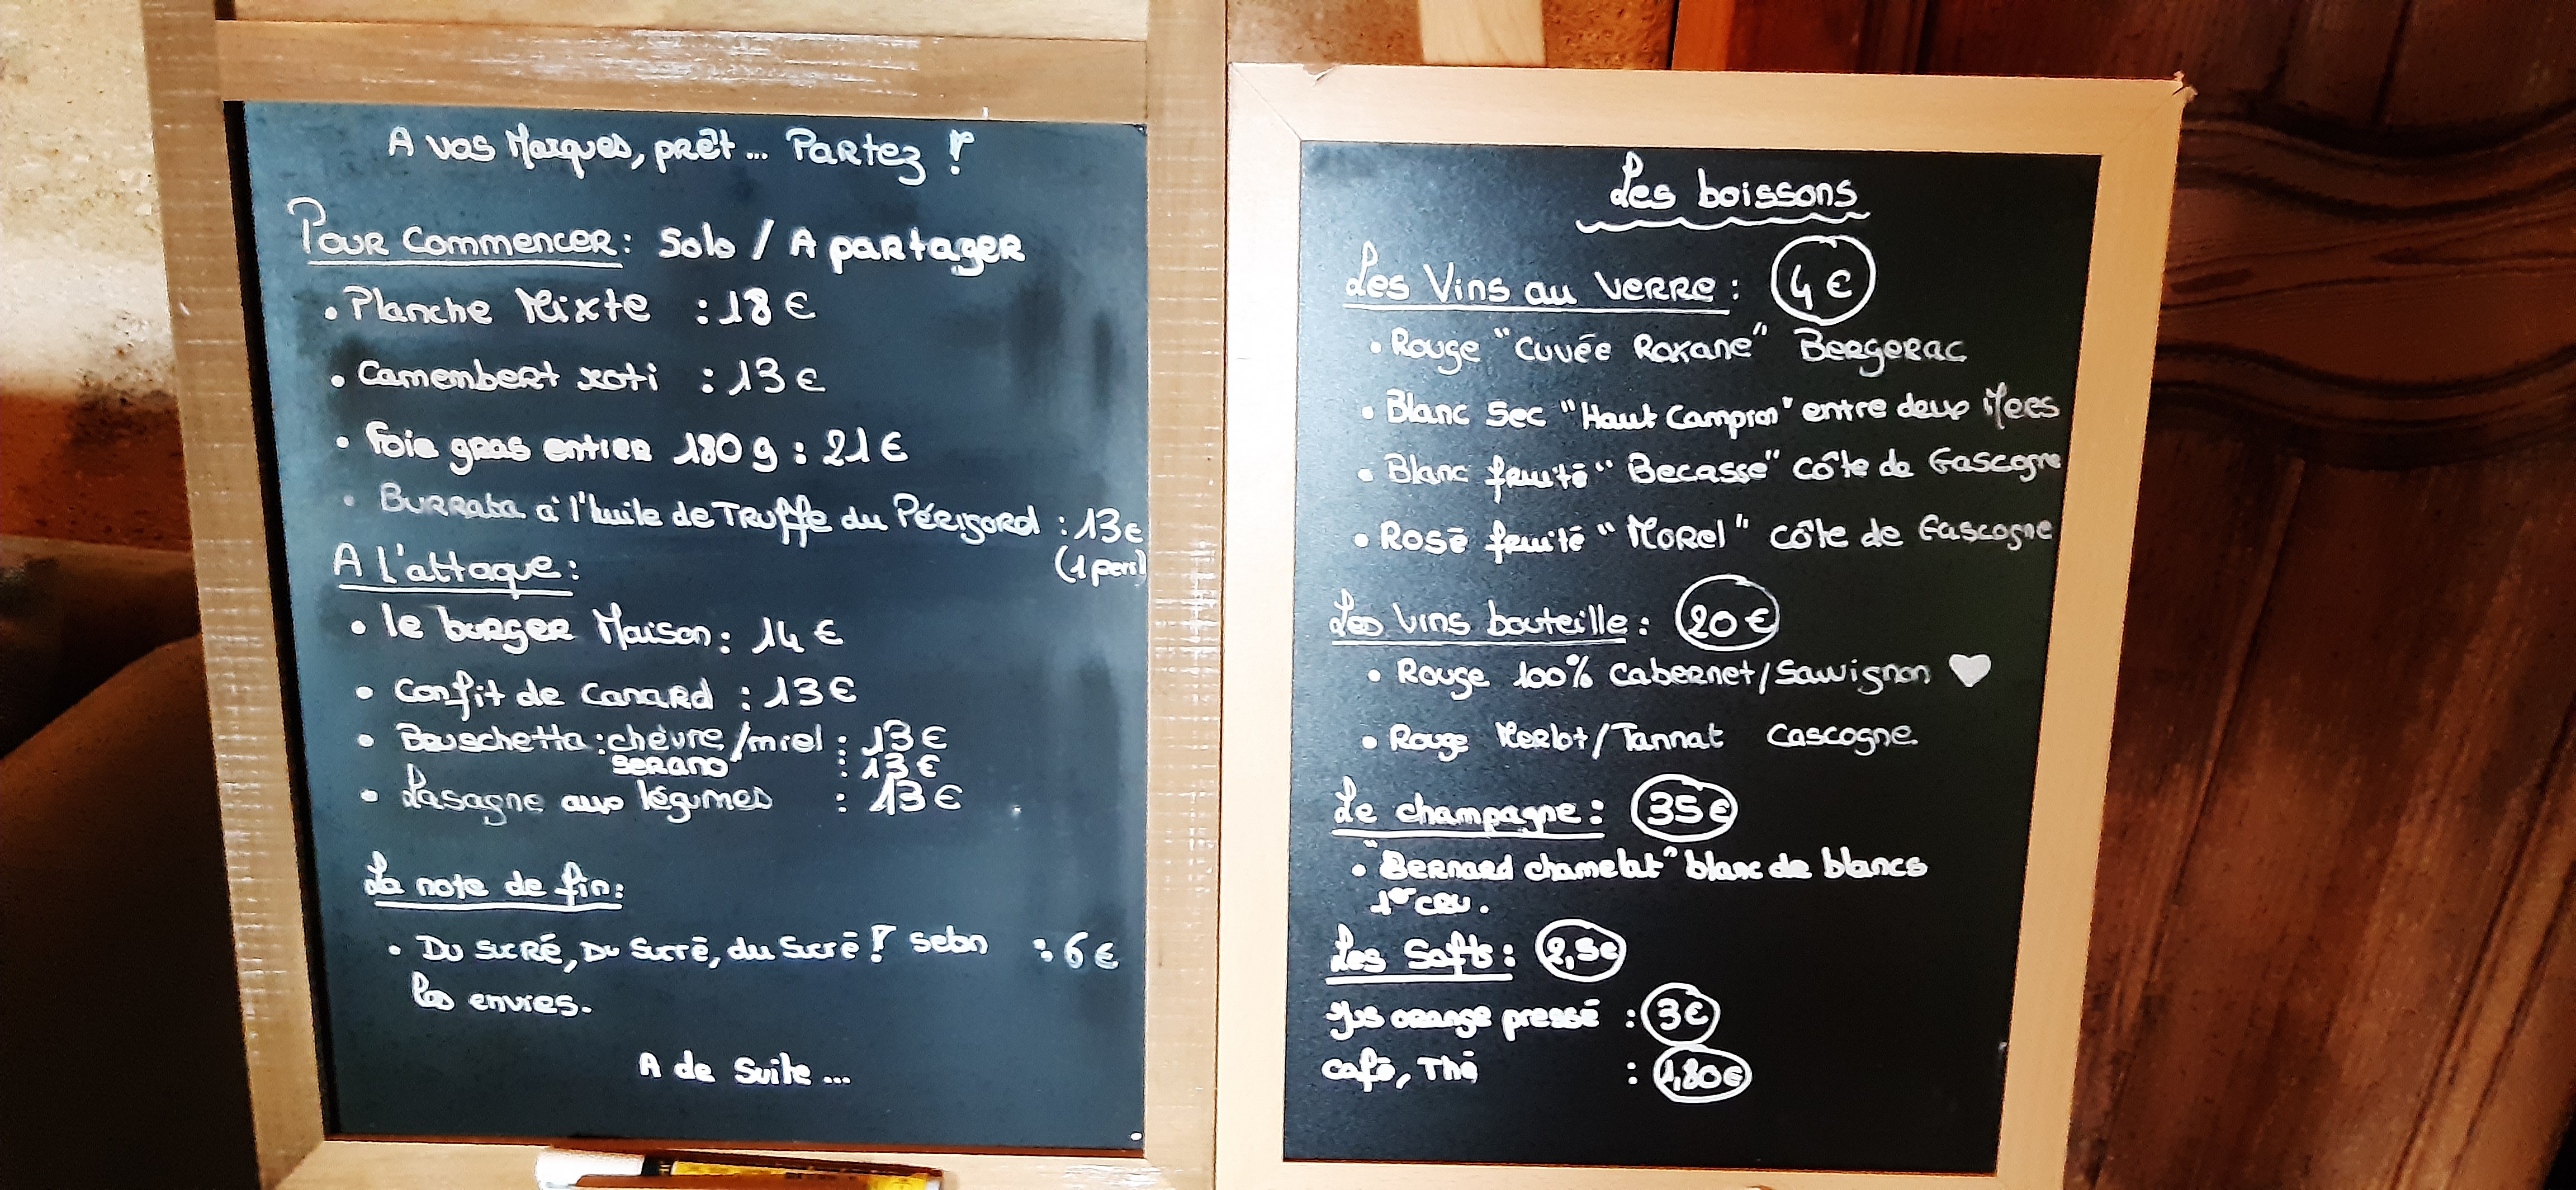 A vos Marques, prêt... Partez !
Pour Commencer : Solo / A partager
• Planche Mixte : 18 €
• Camembert roti : 13 €
• Foie gras entier 180 g : 21 €
• Burrata à l'huile de Truffe du Périgord : 13 €
(1 pers)
A l'attaque :
• le burger Maison : 14 €
• Confit de Canard : 13 €
• Bruschetta : chèvre/miel : 13 €
serano : 13 €
• Lasagne aux légumes : 13 €
La note de fin :
• Du sucré, Du Sucré, du Sucré ! selon : 6 €
les envies.
A de Suite ...
Les boissons
Les Vins au verre : 4 €
• Rouge "Cuvée Roxane" Bergerac
• Blanc Sec "Haut Campron" entre deux Mers
• Blanc fruité "Becasse" côte de Gascogne
• Rosé fruité "Morel" côte de Gascogne
Les Vins bouteille : 20 €
• Rouge 100% Cabernet/Sauvignon ♥
• Rouge Merlot/Tannat Gascogne
Le champagne : 35 €
• "Bernard chamelat" blanc de blancs
1er CRU.
Les Softs : 2,5 €
Jus orange pressé : 3 €
café, Thé : 1,80 €